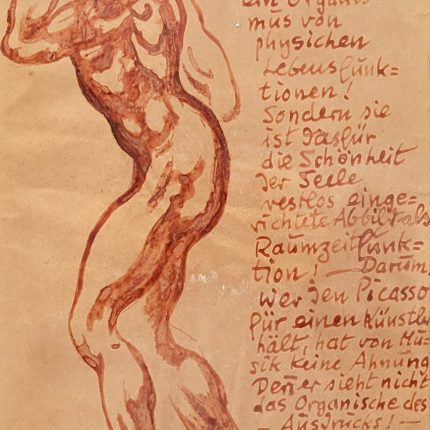 ein Organis=
mus von
physichen
Lebensfunk=
tionen!
Sondern sie
ist das für
die Schönheit
der Seele
restlos einge=
richtete Abbild als
Raumzeitfunk=
tion! — Darum,
wer den Picasso
für einen Künstler
hält, hat von Mu=
sik keine Ahnung
Denn er sieht nicht
das Organische des
— Ausdrucks! —